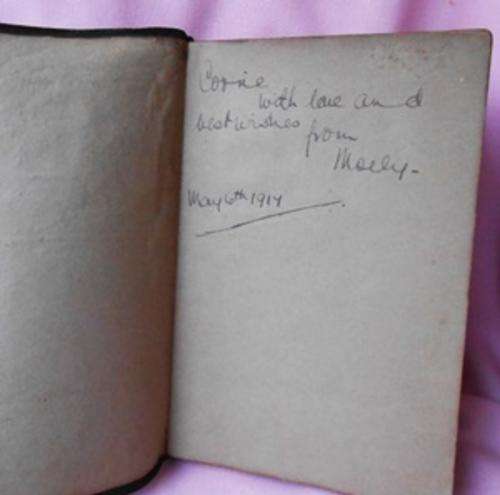 Connie
with love and
best wishes from
Molly.
May 6th 1917